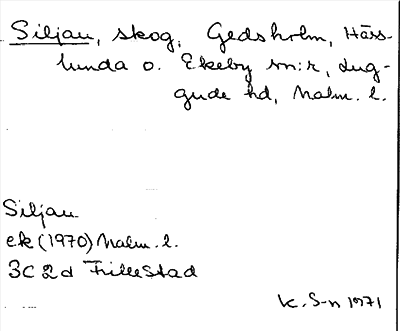 Siljan, skog, Gedsholm, Härs-
lunda o. Ekeby sn:r, Lug-
gude hd, Malm. l.
Siljan
ek (1970) Malm. l.
3C 2d Fillestad
K. S-n 1971